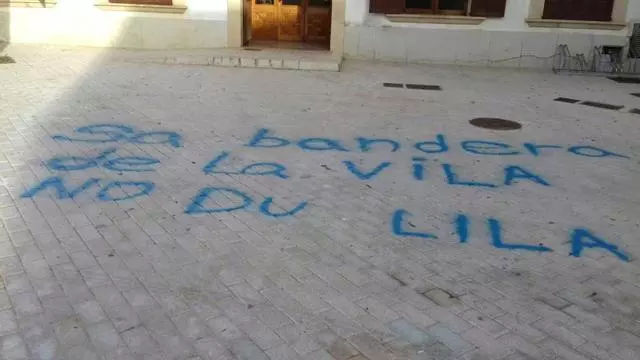 Sa bandera
de La ViLLA
NO DU LILA